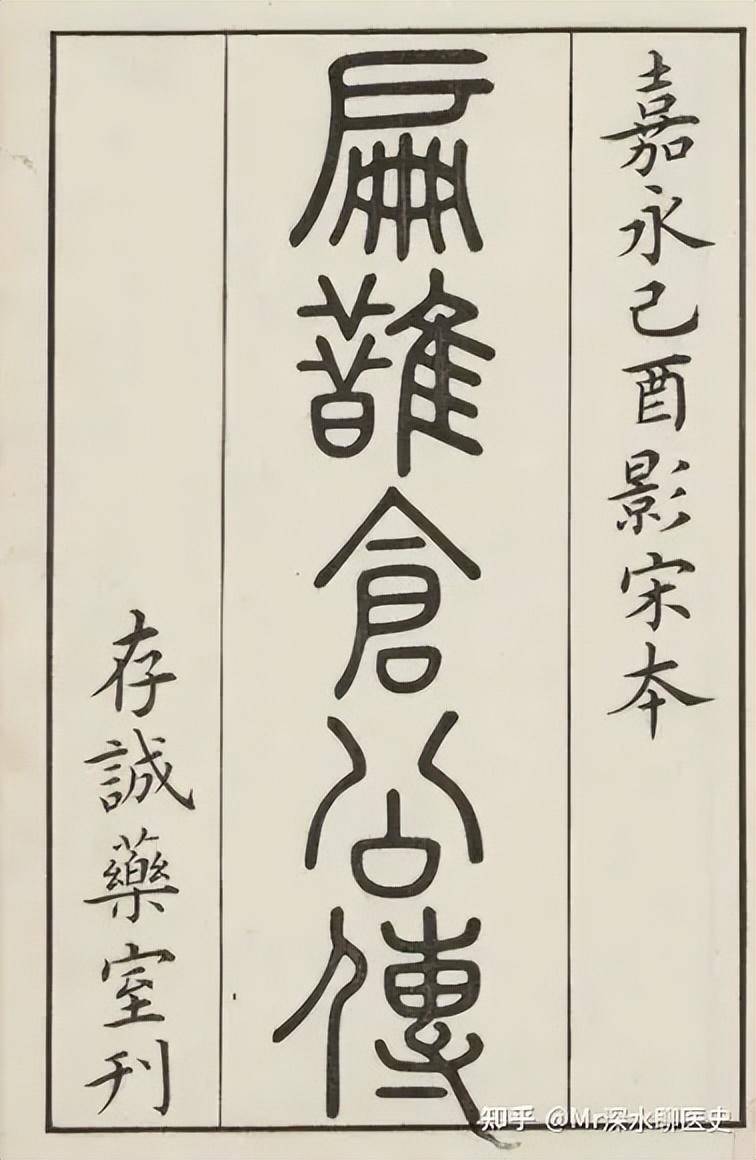 嘉永己酉影宋本
扁䧿倉公傳
存誠藥室刊
知乎 @Mr深水聊医史